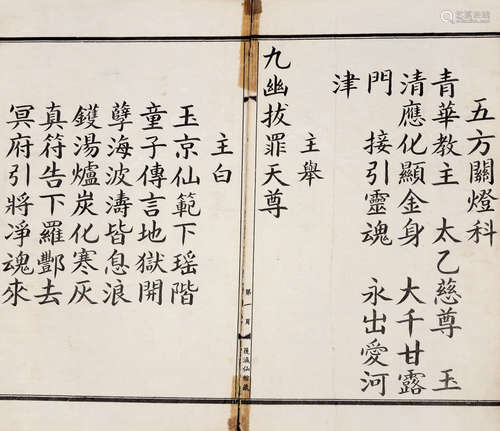 五方關燈科
青華教主　太乙慈尊　玉
清應化顯金身　大千甘露
門　接引靈魂　永出愛河
津
主舉
九幽拔罪天尊
第一頁
主白
玉京仙範下瑤階
童子傳言地獄開
孽海波濤皆息浪
鑊湯爐炭化寒灰
真符告下羅酆去
冥府引將凈魂來